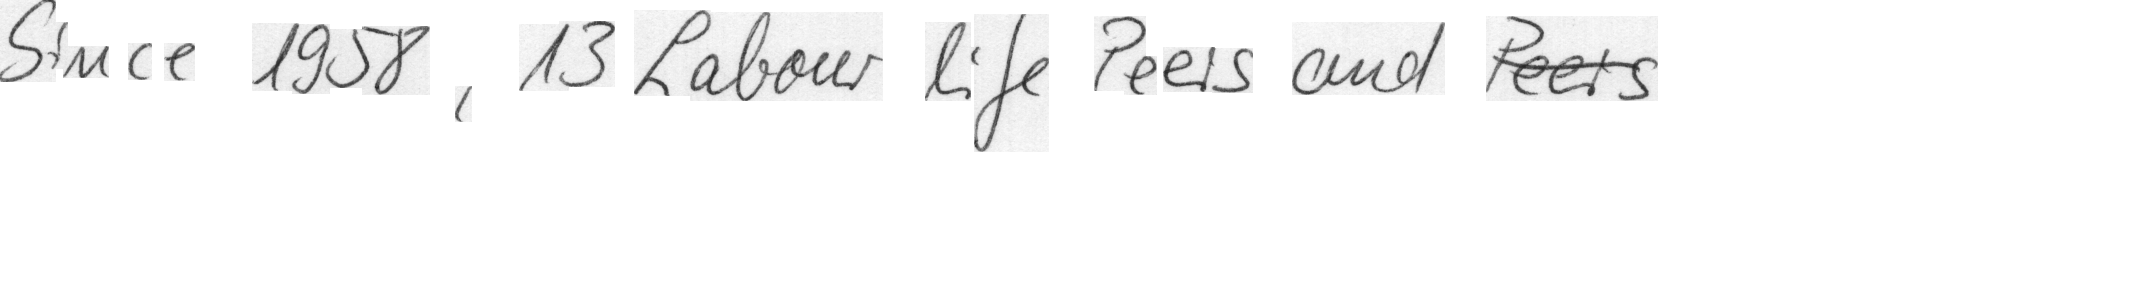 Since 1958, 13 Labour life Peers and Peers